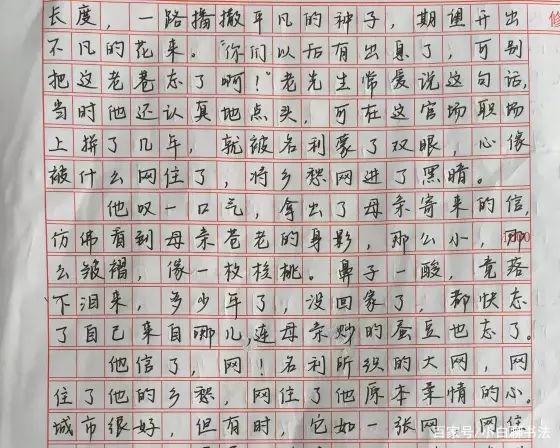 长度，一路播撒平凡的种子，期望开出
不凡的花来。“你们以后有出息了，可别
把这老巷忘了啊！”老先生常爱说这句话，
当时他还认真地点头，可在这官场职场
上拼了几年，就被名利蒙了双眼，心像
被什么网住了，将乡愁网进了黑暗。
他叹一口气，拿出了母亲寄来的信，
仿佛看到母亲苍老的身影，那么小，那
么皱褶，像一枚核桃。鼻子一酸，竟落
下泪来，多少年了，没回家了，都快忘
了自己来自哪儿，连母亲炒的蚕豆也忘了。
他信了，网！名利所织的大网，网
住了他的乡愁，网住了他原本柔情的心。
城市很好，但有时，它如一张网，网住
修
百家号/小白聊书法